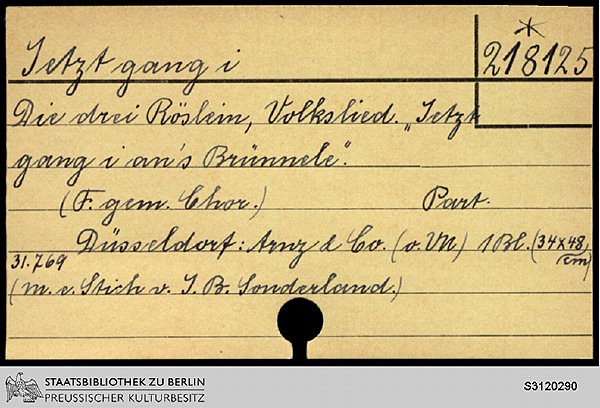 Jetzt gang i
*
218125
Die drei Röslein, Volkslied. „Jetzt
gang i an's Brünnele".
(F. gem. Chor.) Part.
Düsseldorf: Arnz & Co. (o. VN) 1 Bl. (34 x 48 cm)
31.769
(m. e. Stich v. J. B. Sonderland.)
STAATSBIBLIOTHEK ZU BERLIN
PREUSSISCHER KULTURBESITZ
S3120290